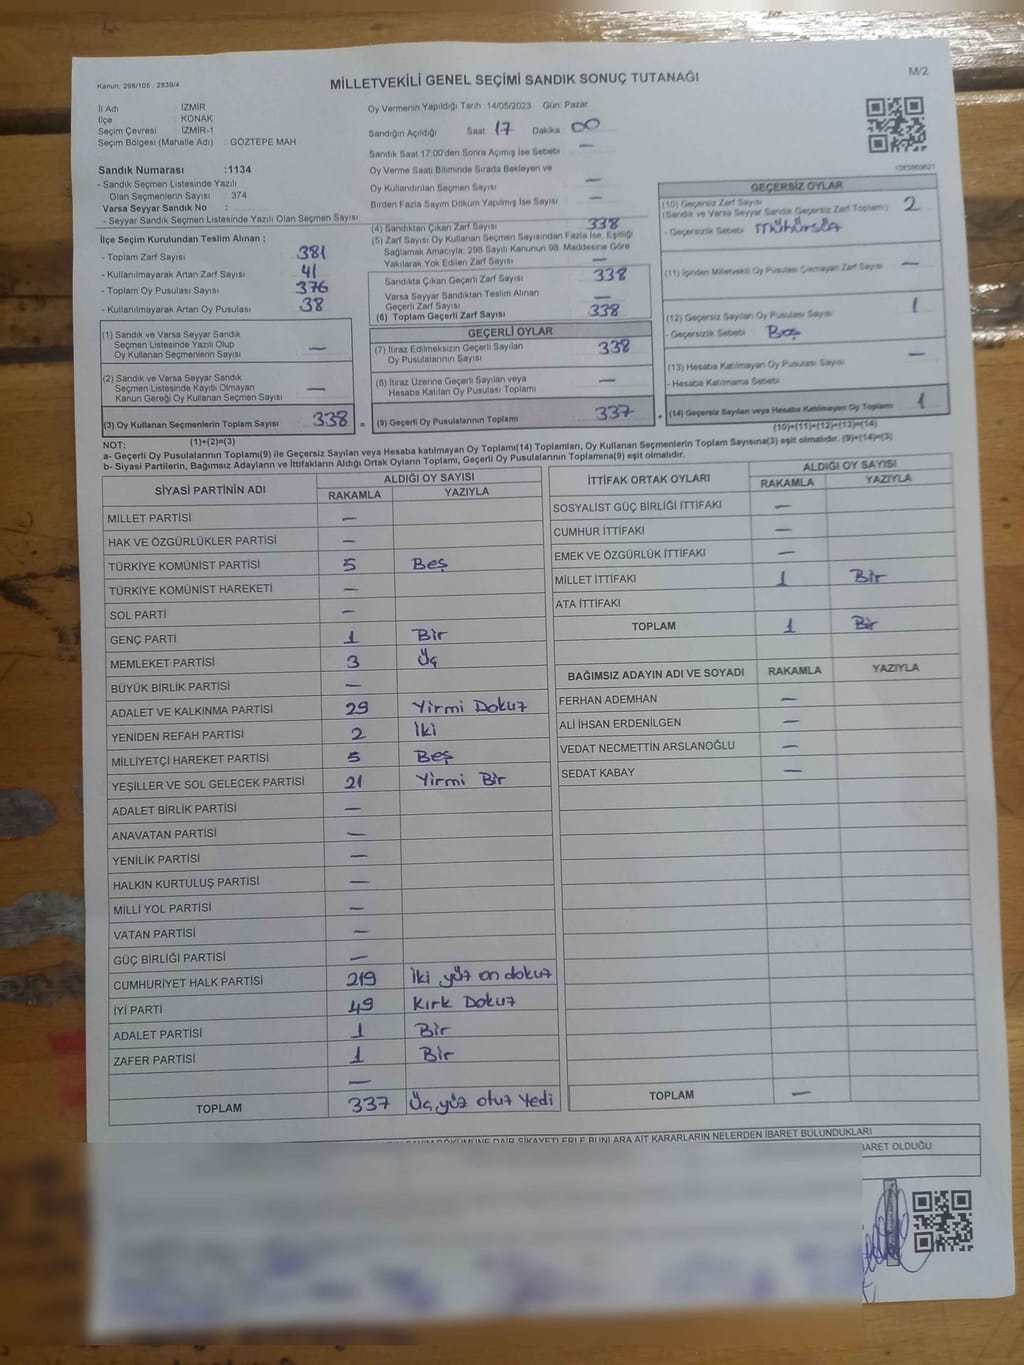 Kanun: 298/105 , 2839/4
MİLLETVEKİLİ GENEL SEÇİMİ SANDIK SONUÇ TUTANAĞI
M/2
İl Adı : İZMİR
İlçe : KONAK
Seçim Çevresi : İZMİR-1
Seçim Bölgesi (Mahalle Adı) : GÖZTEPE MAH
Sandık Numarası :1134
- Sandık Seçmen Listesinde Yazılı
Olan Seçmenlerin Sayısı : 374
Varsa Seyyar Sandık No :
- Seyyar Sandık Seçmen Listesinde Yazılı Olan Seçmen Sayısı:
İlçe Seçim Kurulundan Teslim Alınan ;
- Toplam Zarf Sayısı 381
- Kullanılmayarak Artan Zarf Sayısı 41
- Toplam Oy Pusulası Sayısı 376
- Kullanılmayarak Artan Oy Pusulası 38
(1) Sandık ve Varsa Seyyar Sandık
Seçmen Listesinde Yazılı Olup
Oy Kullanan Seçmenlerin Sayısı —
(2) Sandık ve Varsa Seyyar Sandık
Seçmen Listesinde Kayıtlı Olmayan
Kanun Gereği Oy Kullanan Seçmen Sayısı —
(3) Oy Kullanan Seçmenlerin Toplam Sayısı 338 =
(1)+(2)=(3)
Oy Vermenin Yapıldığı Tarih : 14/05/2023 Gün: Pazar
Sandığın Açıldığı Saat 17 Dakika 00
Sandık Saat 17:00'den Sonra Açımış İse Sebebi —
Oy Verme Saati Bitiminde Sırada Bekleyen ve
Oy Kullandırılan Seçmen Sayısı —
Birden Fazla Sayım Döküm Yapılmış İse Sayısı —
(4) Sandıktan Çıkan Zarf Sayısı 338
(5) Zarf Sayısı Oy Kullanan Seçmen Sayısından Fazla İse, Eşitliği
Sağlamak Amacıyla, 298 Sayılı Kanunun 98. Maddesine Göre
Yakılarak Yok Edilen Zarf Sayısı —
Sandıkta Çıkan Geçerli Zarf Sayısı 338
Varsa Seyyar Sandıktan Teslim Alınan
Geçerli Zarf Sayısı —
(6) Toplam Geçerli Zarf Sayısı 338
GEÇERLİ OYLAR
(7) İtiraz Edilmeksizin Geçerli Sayılan
Oy Pusulalarının Sayısı 338
(8) İtiraz Üzerine Geçerli Sayılan veya
Hesaba Katılan Oy Pusulası Toplamı —
(9) Geçerli Oy Pusulalarının Toplamı 337 +
GEÇERSİZ OYLAR
(10) Geçersiz Zarf Sayısı
(Sandık ve Varsa Seyyar Sandık Geçersiz Zarf Toplamı) 2
- Geçersizlik Sebebi
(11) İçinden Milletvekili Oy Pusulası Çıkmayan Zarf Sayısı —
(12) Geçersiz Sayılan Oy Pusulası Sayısı 1
- Geçersizlik Sebebi Boş
(13) Hesaba Katılmayan Oy Pusulası Sayısı —
- Hesaba Katılmama Sebebi
(14) Geçersiz Sayılan veya Hesaba Katılmayan Oy Toplamı 1
(10)+(11)+(12)+(13)=(14)
NOT:
a- Geçerli Oy Pusulalarının Toplamı(9) ile Geçersiz Sayılan veya Hesaba katılmayan Oy Toplamı(14) Toplamları, Oy Kullanan Seçmenlerin Toplam Sayısına(3) eşit olmalıdır. (9)+(14)=(3)
b- Siyasi Partilerin, Bağımsız Adayların ve İttifakların Aldığı Ortak Oyların Toplamı, Geçerli Oy Pusulalarının Toplamına(9) eşit olmalıdır.
SİYASİ PARTİNİN ADI ALDIĞI OY SAYISI
RAKAMLA YAZIYLA
MİLLET PARTİSİ —
HAK VE ÖZGÜRLÜKLER PARTİSİ —
TÜRKİYE KOMÜNİST PARTİSİ 5 Beş
TÜRKİYE KOMÜNİST HAREKETİ —
SOL PARTİ —
GENÇ PARTİ 1 Bir
MEMLEKET PARTİSİ 3 Üç
BÜYÜK BİRLİK PARTİSİ —
ADALET VE KALKINMA PARTİSİ 29 Yirmi Dokuz
YENİDEN REFAH PARTİSİ 2 İki
MİLLİYETÇİ HAREKET PARTİSİ 5 Beş
YEŞİLLER VE SOL GELECEK PARTİSİ 21 Yirmi Bir
ADALET BİRLİK PARTİSİ —
ANAVATAN PARTİSİ —
YENİLİK PARTİSİ —
HALKIN KURTULUŞ PARTİSİ —
MİLLİ YOL PARTİSİ —
VATAN PARTİSİ —
GÜÇ BİRLİĞİ PARTİSİ —
CUMHURİYET HALK PARTİSİ 219 İki yüz on dokuz
İYİ PARTİ 49 Kırk Dokuz
ADALET PARTİSİ 1 Bir
ZAFER PARTİSİ 1 Bir
—
TOPLAM 337 Üç yüz otuz Yedi
İTTİFAK ORTAK OYLARI ALDIĞI OY SAYISI
RAKAMLA YAZIYLA
SOSYALİST GÜÇ BİRLİĞİ İTTİFAKI —
CUMHUR İTTİFAKI —
EMEK VE ÖZGÜRLÜK İTTİFAKI —
MİLLET İTTİFAKI 1 Bir
ATA İTTİFAKI
TOPLAM 1 Bir
BAĞIMSIZ ADAYIN ADI VE SOYADI RAKAMLA YAZIYLA
FERHAN ADEMHAN —
ALİ İHSAN ERDENİLGEN —
VEDAT NECMETTİN ARSLANOĞLU —
SEDAT KABAY —
TOPLAM —
DÖKÜMÜNE DAİR ŞİKAYETLERLE BUNLARA AİT KARARLARIN NELERDEN İBARET BULUNDUKLARI
BARET OLDUĞU